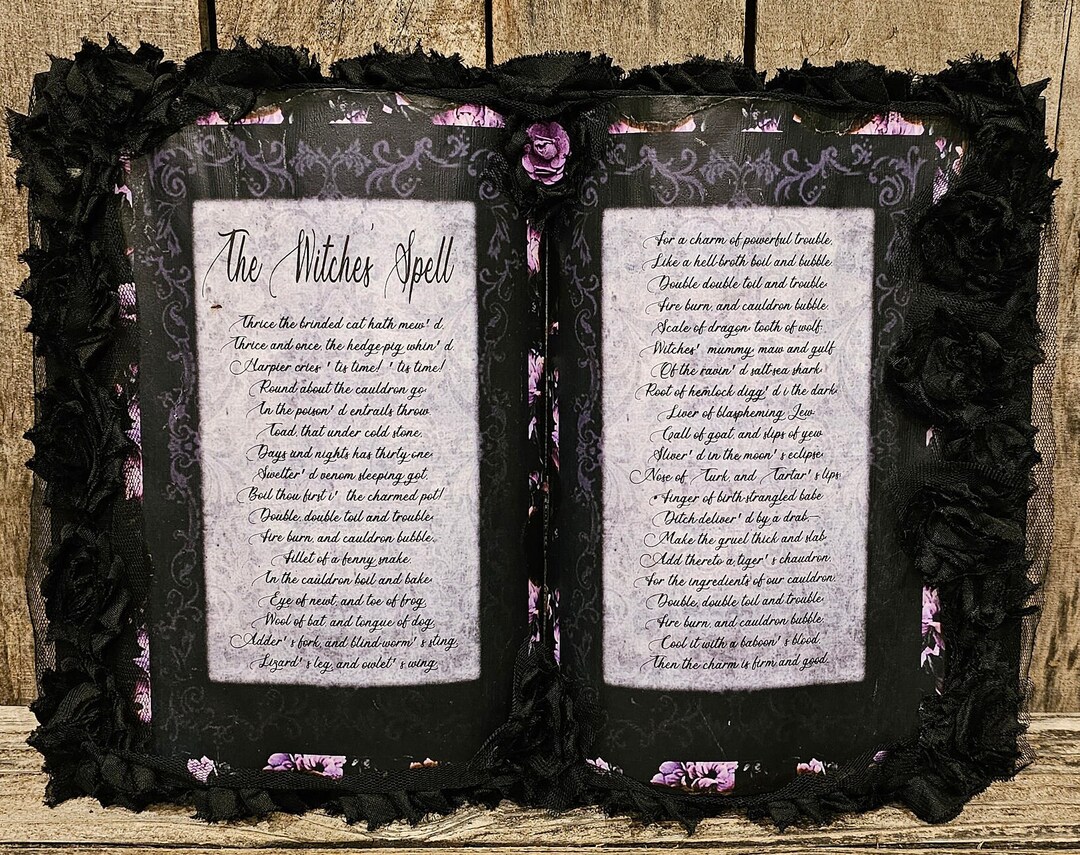 The Witches' Spell
Thrice the brinded cat hath mew' d.
Thrice and once, the hedge-pig whin' d.
Harpier cries ' tis time! ' tis time!
Round about the cauldron go.
In the poison' d entrails throw.
Toad, that under cold stone,
Days und nights has thirty-one
Swelter' d venom sleeping got.
Boil thou first i' the charmed pot!
Double, double toil and trouble;
Fire burn, and cauldron bubble.
Fillet of a fenny snake.
In the cauldron boil and bake
Eye of newt, and toe of frog,
Wool of bat, and tongue of dog,
Adder' s fork, and blind-worm' s sting,
Lizard' s leg, and owlet' s wing,
For a charm of powerful trouble,
Like a hell-broth boil and bubble.
Double double toil and trouble;
Fire burn, and cauldron bubble.
Scale of dragon; tooth of wolf;
Witches' mummy; maw and gulf
Of the ravin' d salt-sea shark;
Root of hemlock digg' d i the dark;
Liver of blaspheming Jew
Gall of goat, and slips of yew
Sliver' d in the moon' s eclipse;
Nose of Turk, and Tartar' s lips;
Finger of birth-strangled babe
Ditch-deliver' d by a drab,-
Make the gruel thick and slab.
Add thereto a tiger' s chaudron,
For the ingredients of our cauldron.
Double, double toil and trouble;
Fire burn, and cauldron bubble.
Cool it with a baboon' s blood,
Then the charm is firm and good.